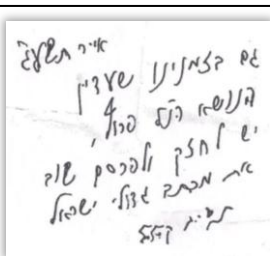 אייר תשע״ג
גם בזמנינו שעדין
הנושא הנ״ל פרוץ,
יש לחזק ולפרסם שוב
את מכתב גדולי ישראל